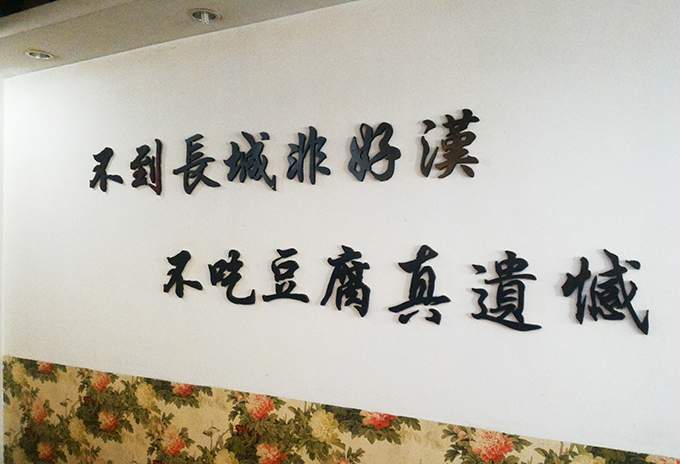 不到長城非好漢
不吃豆腐真遺憾